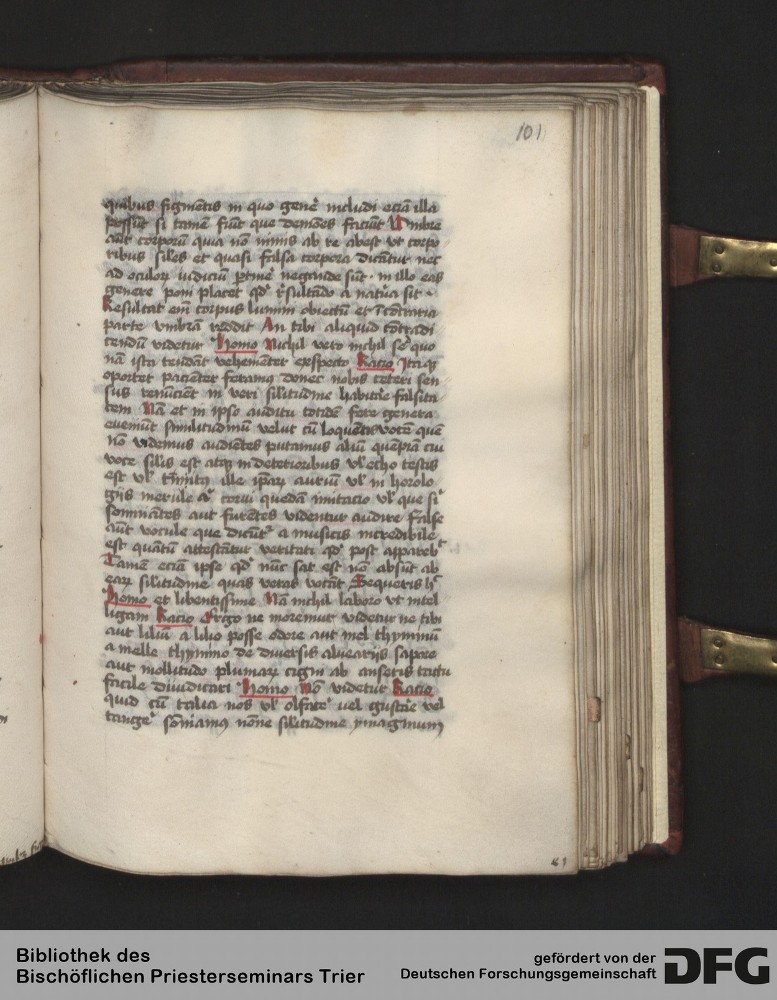 101
quibus figmētis in quo genē includi eciā illa
possūt si tamē fiūt que demōes faciūt Umbre
aūt corporū quia nō nimis ab re abest vt corpo
ribus siles et quasi falsa corpora dicātur nec
ad oculorū iudiciū ꝑtinē negande sūt in illo eas
genere poni placet qd' rͤsultādo a natura fit
Resultat em̄ corpus lumini obiectū et ī ɔtraria
parte vmbrā reddit An tibi aliquid cōtradi
cendū videtur Homo Nichil vero michil sꝫ quo
nā ista tendāt vehemēter exspecto Racio Itaqꝫ
oportet paciēter feramꝰ donec nobis ceteri sen
sus renūcient in veri silitudine habitare falsita
tem Nā et in ipso auditu totidē fere genera
eveniūt similitudinū velut cū loquētis vocē quē
nō videmus audiētes putamus aliū quēpiā cui
voce silis est atqꝫ in deterioribus vl' echo testis
est vl' tīnitꝰ ille ip̄arū auriū vl' in horolo
gijs merule aut corui quedā imitacio vl' que si'
somniantes aut furētes videntur audire False
aūt vocule que dicūtʳ a musicis incredibile
est quātū attestātur veritati qd' post apparebͭ
Tamē eciā ipse qd' nūc sat est nō absūt ab
earū silitudine quas veras vocāt Sequeris hͦ
Homo et libentissime Nā nichil laboro vt intel
ligam Racio Ergo ne moremur videtur ne tibi
aut liliū a lilio posse odore aut mel thyminū
a melle thymino de diversis aluearijs sapore
aut mollitudo plumarū cigni ab anseris tactu
facile diiudicari Homo Nō videtur Racio
quid cū talia nos vl' olfacē vel gustare vel
tangē sōniamꝰ nōne silitudine ymaginum
61
Bibliothek des
Bischöflichen Priesterseminars Trier
gefördert von der
Deutschen Forschungsgemeinschaft
DFG